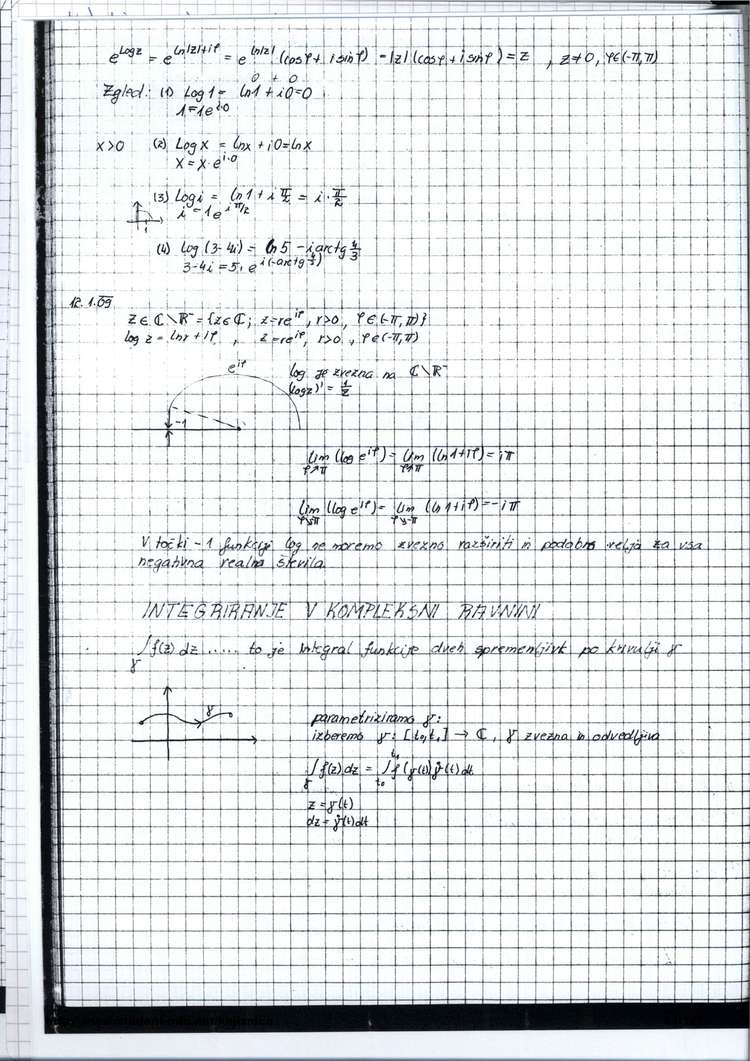 e^{Log z} = e^{ln|z|+iφ} = e^{ln|z|} (cosφ + i sinφ) = |z| (cosφ + i sinφ) = z , z≠0, φ∈(-π,π)
0 + 0
Zgled: (1) Log 1 = ln1 + i0 = 0
1 = 1e^{i·0}
x>0 (2) Log x = lnx + i0 = lnx
x = x·e^{i·0}
(3) Log i = ln1 + i π/2 = i·π/2
i = 1e^{iπ/2}
(4) Log (3-4i) = ln 5 - i arctg 4/3
3-4i = 5·e^{i(-arctg 4/3)}
12.1.09
z∈ℂ\ℝ⁻ = {z∈ℂ; z=re^{iφ}, r>0, φ∈(-π,π)}
log z = lnr + iφ , z=re^{iφ}, r>0, φ∈(-π,π)
e^{iφ}
log je zvezna na ℂ\ℝ⁻
(log z)' = 1/z
-1
lim_{φ↗π} (log e^{iφ}) = lim_{φ↗π} (ln1+iφ) = iπ
lim_{φ↘-π} (log e^{iφ}) = lim_{φ↘-π} (ln1+iφ) = -iπ
V točki -1 funkcije log ne moremo zvezno razširiti in podobno velja za vsa
negativna realna števila.
INTEGRIRANJE V KOMPLEKSNI RAVNINI
∫_γ f(z) dz ..... to je integral funkcije dveh spremenljivk po krivulji γ
γ
parametriziramo γ:
izberemo γ: [t₀,t₁] → ℂ, γ zvezna in odvedljiva
∫_γ f(z) dz = ∫_{t₀}^{t₁} f(γ(t)) γ̇(t) dt
z = γ(t)
dz = γ̇(t) dt